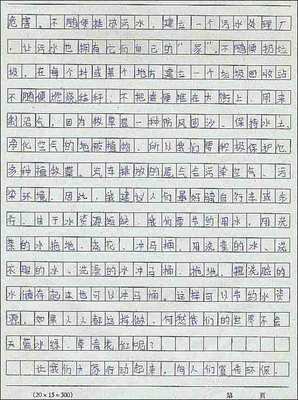 危害。不随便排放污水，建立一个污水处理厂
，让污水也拥有它们自己的“家”。不随便扔垃
圾，在每个村或某个地方建立一个垃圾回收站
不随便燃烧秸秆，不把 堆在大街上，用来
制沼气，因为 是一种防风固沙、保持水土、
净化空气的地被植物，所以我们要积极保护它
多种植 。汽车排放的尾气会污染空气、污
染环境，因此，我建议人们最好骑自行车或步
行。由于水资源短缺，我们要节约用水，用洗
菜的水拖地、浇花、冲马桶，用洗衣的水、
不脏的水、洗澡的水冲马桶、拖地，把洗脸的
水储存起来也可以冲马桶。这样可以节约水资
源。如果人人都这样做，何愁我们的世界不会
天蓝水绿、草青花红呢？
让我们大家行动起来，向人们宣传环保，
(20×15=300) 第 页